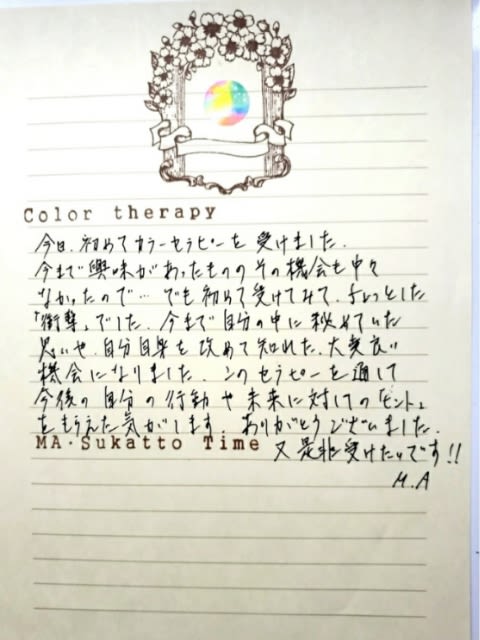 Color therapy
今日、初めてカラーセラピーを受けました。
今まで興味があったもののその機会も中々
なかったので… でも初めて受けてみて、ちょっとした
「衝撃」でした。今まで自分の中に秘めていた
思いや、自分自身を改めて知れた、大変良い
機会になりました。このセラピーを通して
今後の自分の行動や未来に対しての「ヒント」
をもらえた気がします。ありがとうございました。
MA・Sukatto Time
又是非受けたいです!!
M.A